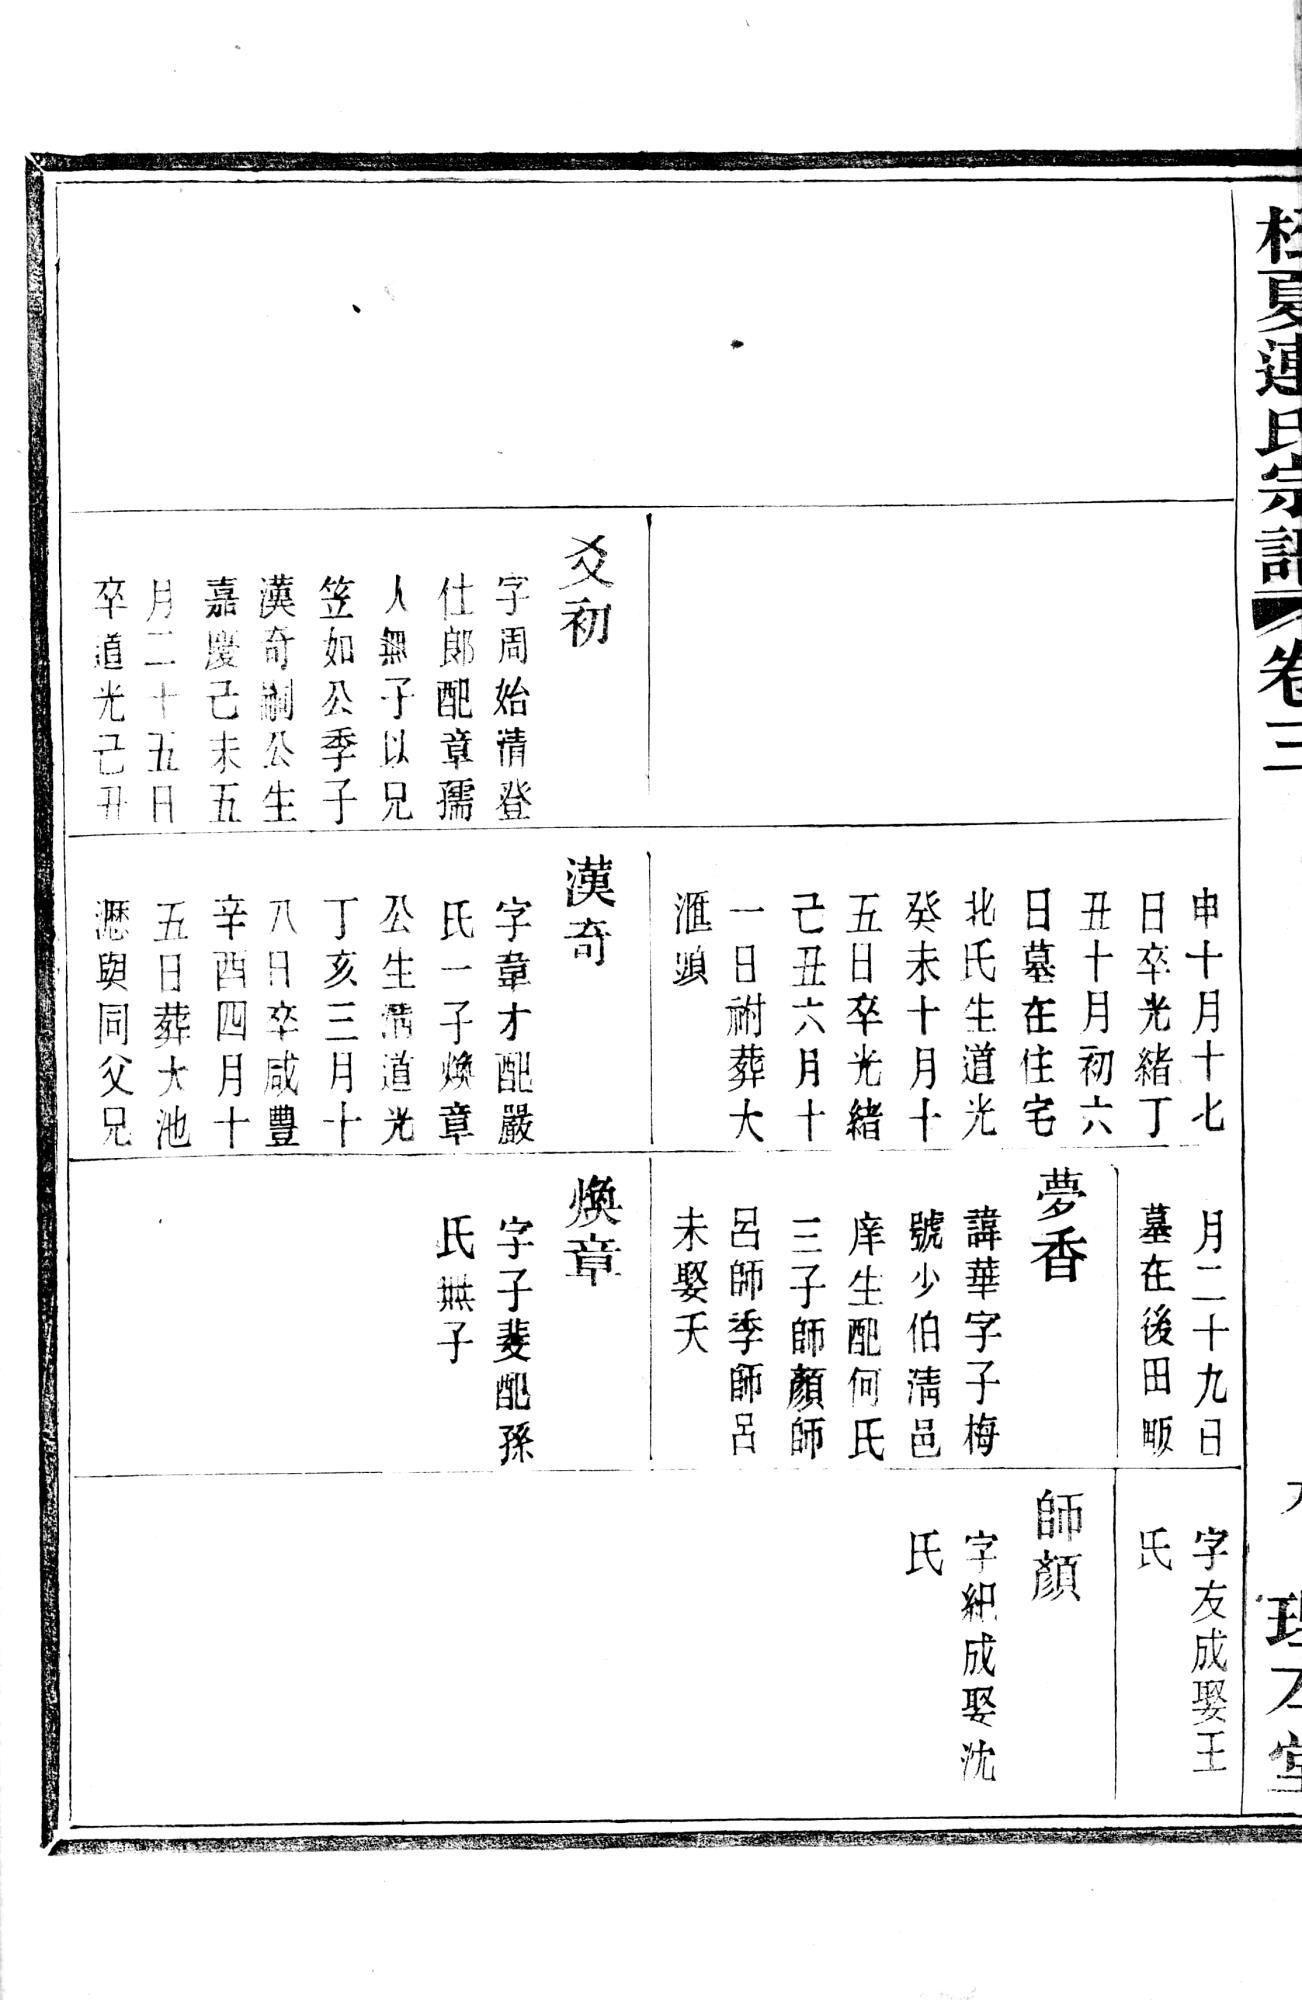 夏連氏宗譜 卷三
爻初
字周始清登
仕郎配章孺
人無子以兄
笠如公季子
漢奇嗣公生
嘉慶己未五
月二十五日
卒道光己丑
申十月十七
日卒光緒丁
丑十月初六
日墓在住宅
北氏生道光
癸未十月十
五日卒光緒
己丑六月十
一日祔葬大
滙頭
漢奇
字韋才配嚴
氏一子煥章
公生清道光
丁亥三月十
八日卒咸豐
辛酉四月十
五日葬大池
瀝與同父兄
月二十九日
墓在後田畈
夢香
諱華字子梅
號少伯清邑
庠生配何氏
三子師顏師
呂師季師呂
未娶夭
煥章
字子斐配孫
氏無子
字友成娶王
氏
師顏
字紀成娶沈
氏